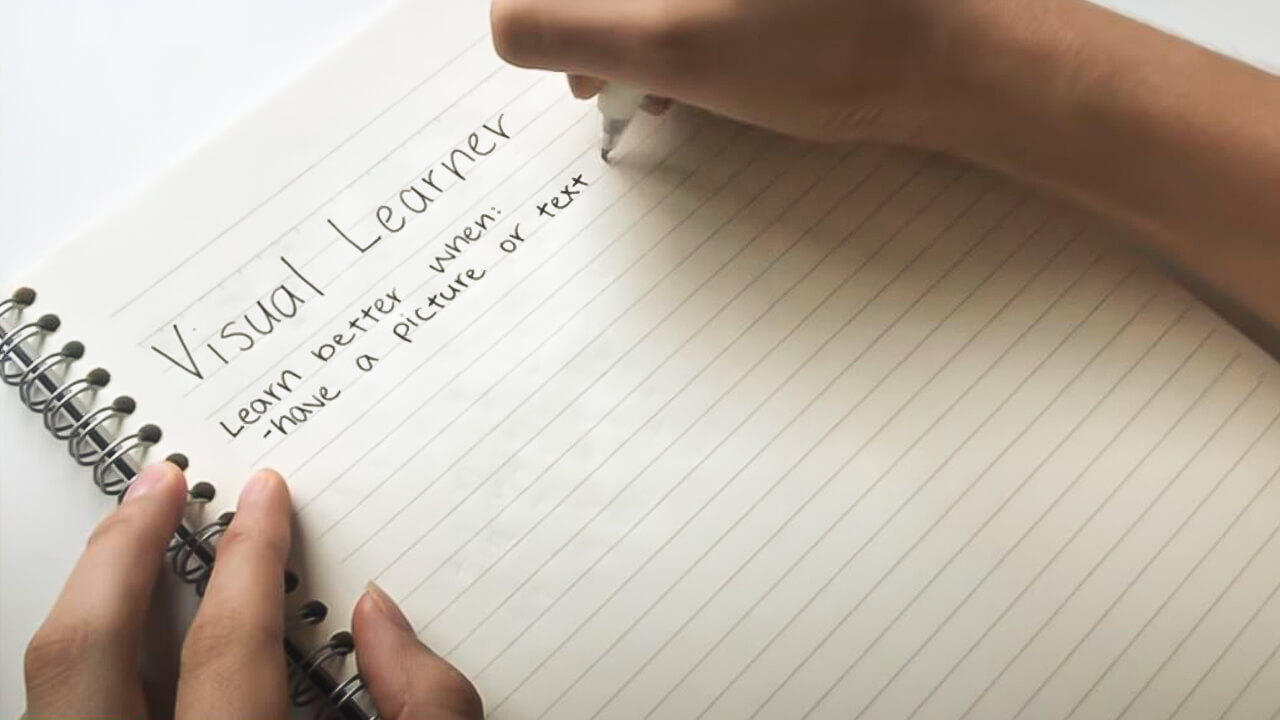 Visual Learner
Learn better when:
-have a picture or text